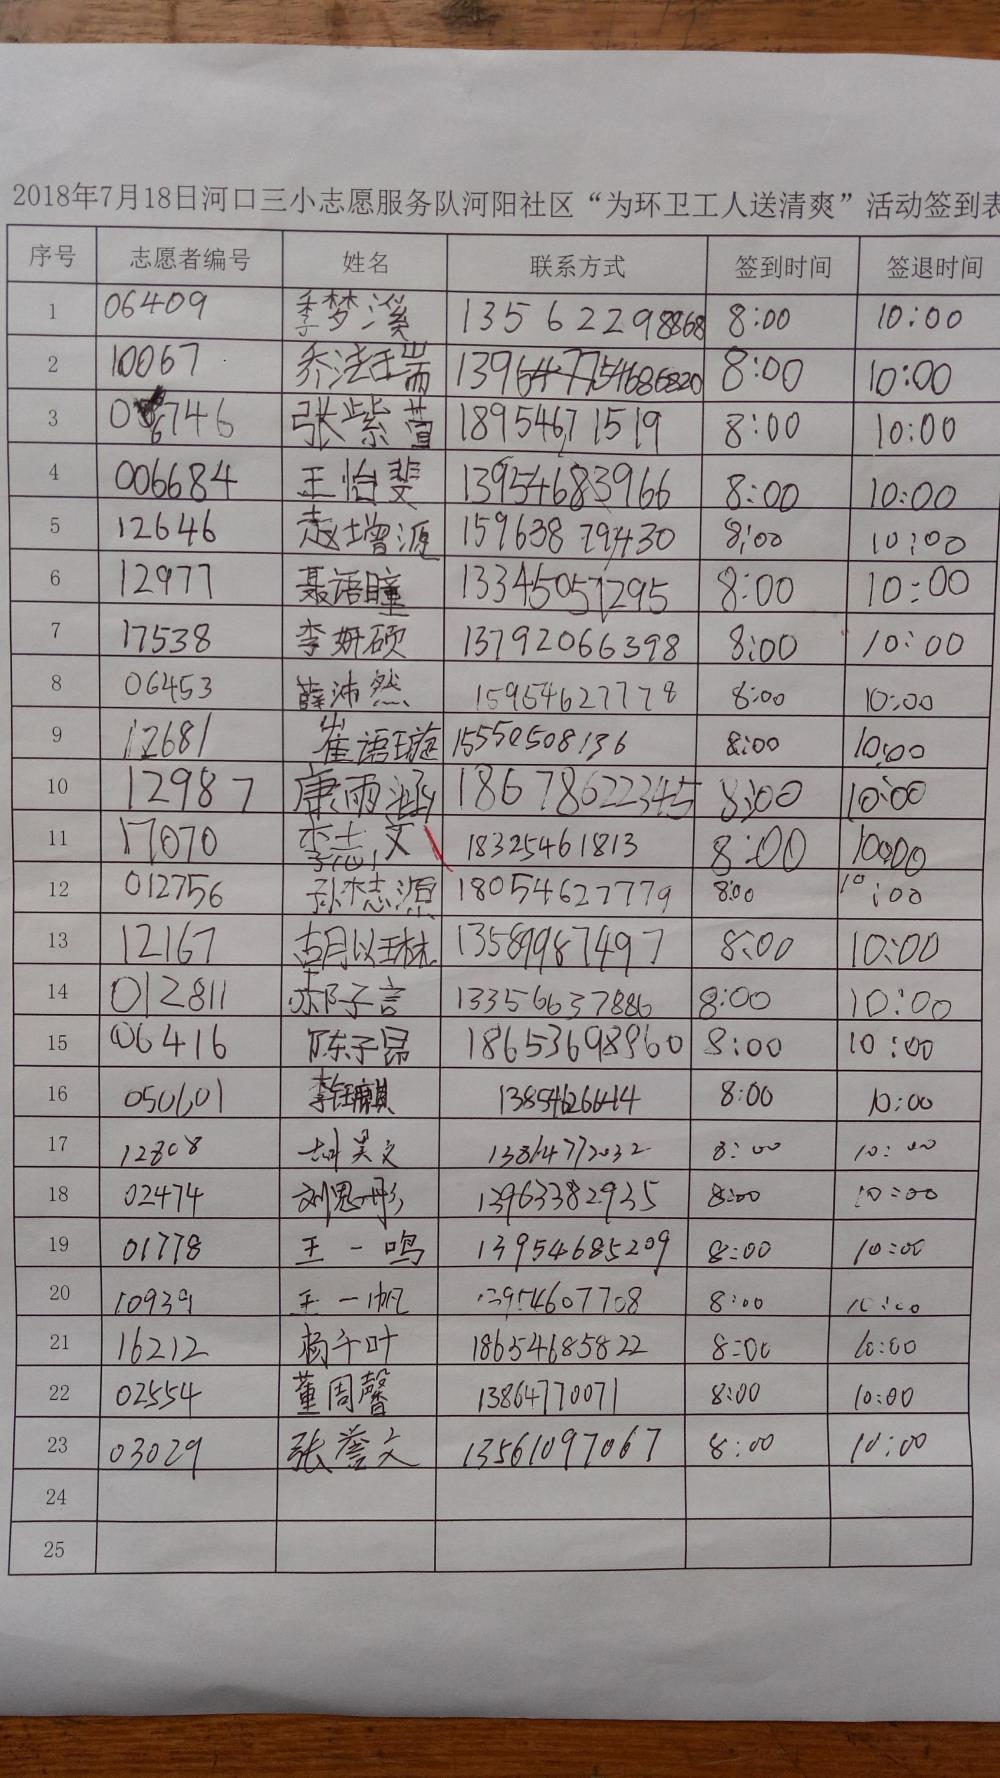 2018年7月18日河口三小志愿服务队河阳社区“为环卫工人送清爽”活动签到表
序号 志愿者编号 姓名 联系方式 签到时间 签退时间
1 06409 季梦溪 13562298868 8:00 10:00
2 10067 乔法瑞 8:00 10:00
3 张紫萱 18954671519 8:00 10:00
4 006684 王怡斐 13954683966 8:00 10:00
5 12646 赵增源 15963879430 8:00 10:00
6 12977 聂语瞳 13345057295 8:00 10:00
7 17538 李妍硕 13792066398 8:00 10:00
8 06453 薛沛然 15954627778 8:00 10:00
9 12681 崔语璇 15550508136 8:00 10:00
10 12987 康雨涵 18678622345 8:00 10:00
11 17070 李志文 18325461813 8:00 10:00
12 012756 孙志源 18054627779 8:00 10:00
13 12167 胡以琳 13589987497 8:00 10:00
14 012811 祁子言 13356637886 8:00 10:00
15 06416 陈子昂 18653698960 8:00 10:00
16 050601 李钰麒 8:00 10:00
17 12808 13864772032 8:00 10:00
18 02474 刘思彤 13963382935 8:00 10:00
19 01778 王一鸣 13954685209 8:00 10:00
20 10939 王一帆 13954607708 8:00 10:00
21 16212 杨千叶 18654685822 8:00 10:00
22 02554 董周馨 13864770071 8:00 10:00
23 03029 张誉文 13561097067 8:00 10:00
24
25